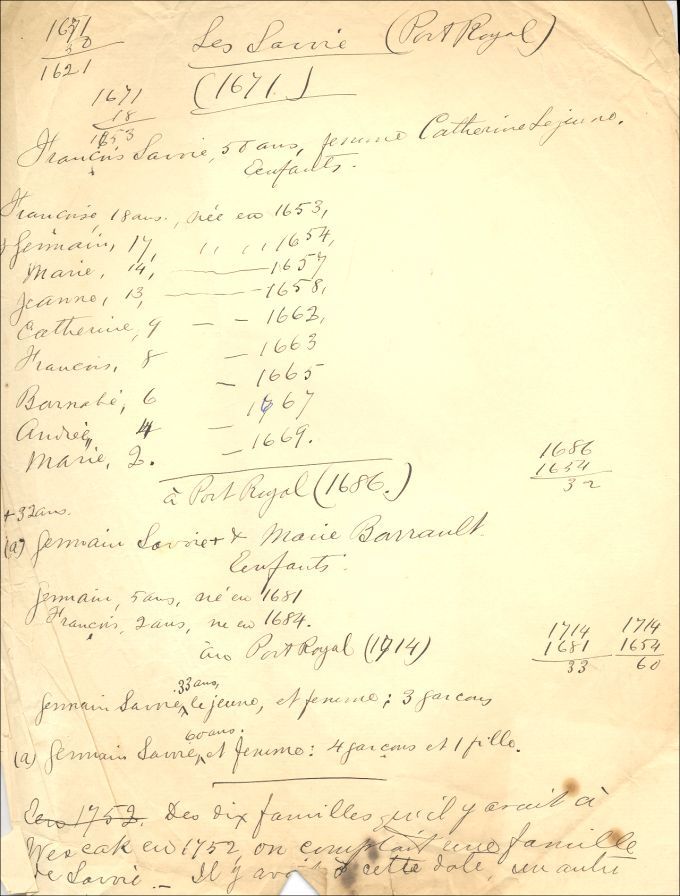 1671
50
1621
Les Savoie (Port Royal)
(1671.)
1671
18
1653
François Savoie, 50 ans, femme Catherine Lejeune.
Enfants.
Françoise, 18 ans., née en 1653,
Germain, 17, " " " 1654,
Marie, 14, — 1657
Jeanne, 13, — 1658,
Catherine, 9 — — 1662,
François, 8 — 1663
Barnabé, 6 — 1665
Andrée, 4 — 1667
Marie, 2. — 1669.
à Port Royal (1686.)
1686
1654
32
+32 ans.
(a) Germain Savoie + & Marie Barrault.
Enfants.
Germain, 5 ans, né en 1681
François, 2 ans, né en 1684.
au Port Royal (1714)
1714
1681
33
1714
1654
60
33 ans,
Germain Savoie, lejeune, et femme; 3 garcons
60 ans.
(a) Germain Savoie, et femme: 4 garcons et 1 fille.
En 1752. Des dix familles qu'il y avait à
Wescak en 1752, on comptait une famille
de Savoie. — Il y avait à cette date, un autre